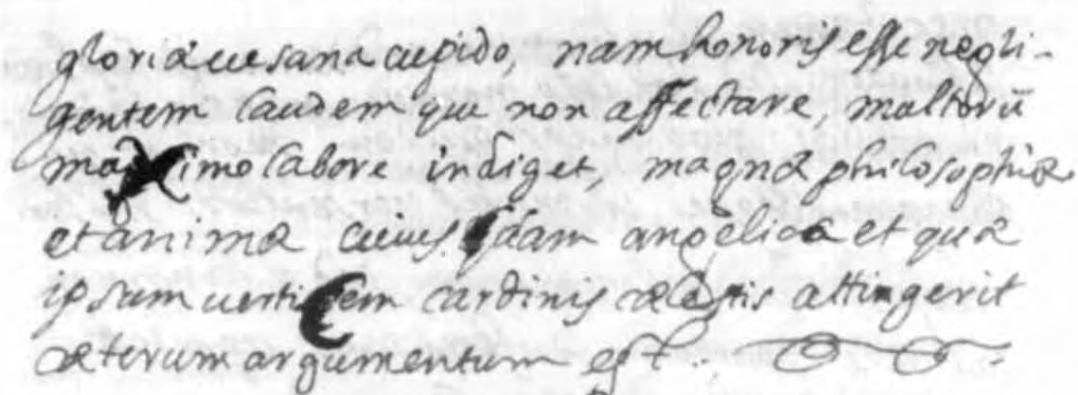 gloriæ uesana cupido, nam honoris esse negli-
gentem laudem que non affectare, multorū
maximo labore indiget, magnæ philosophiæ
et animæ cuius dam angelicæ et quæ
ipsum uerticem cardinis cælestis attingerit
æterum argumentum est.